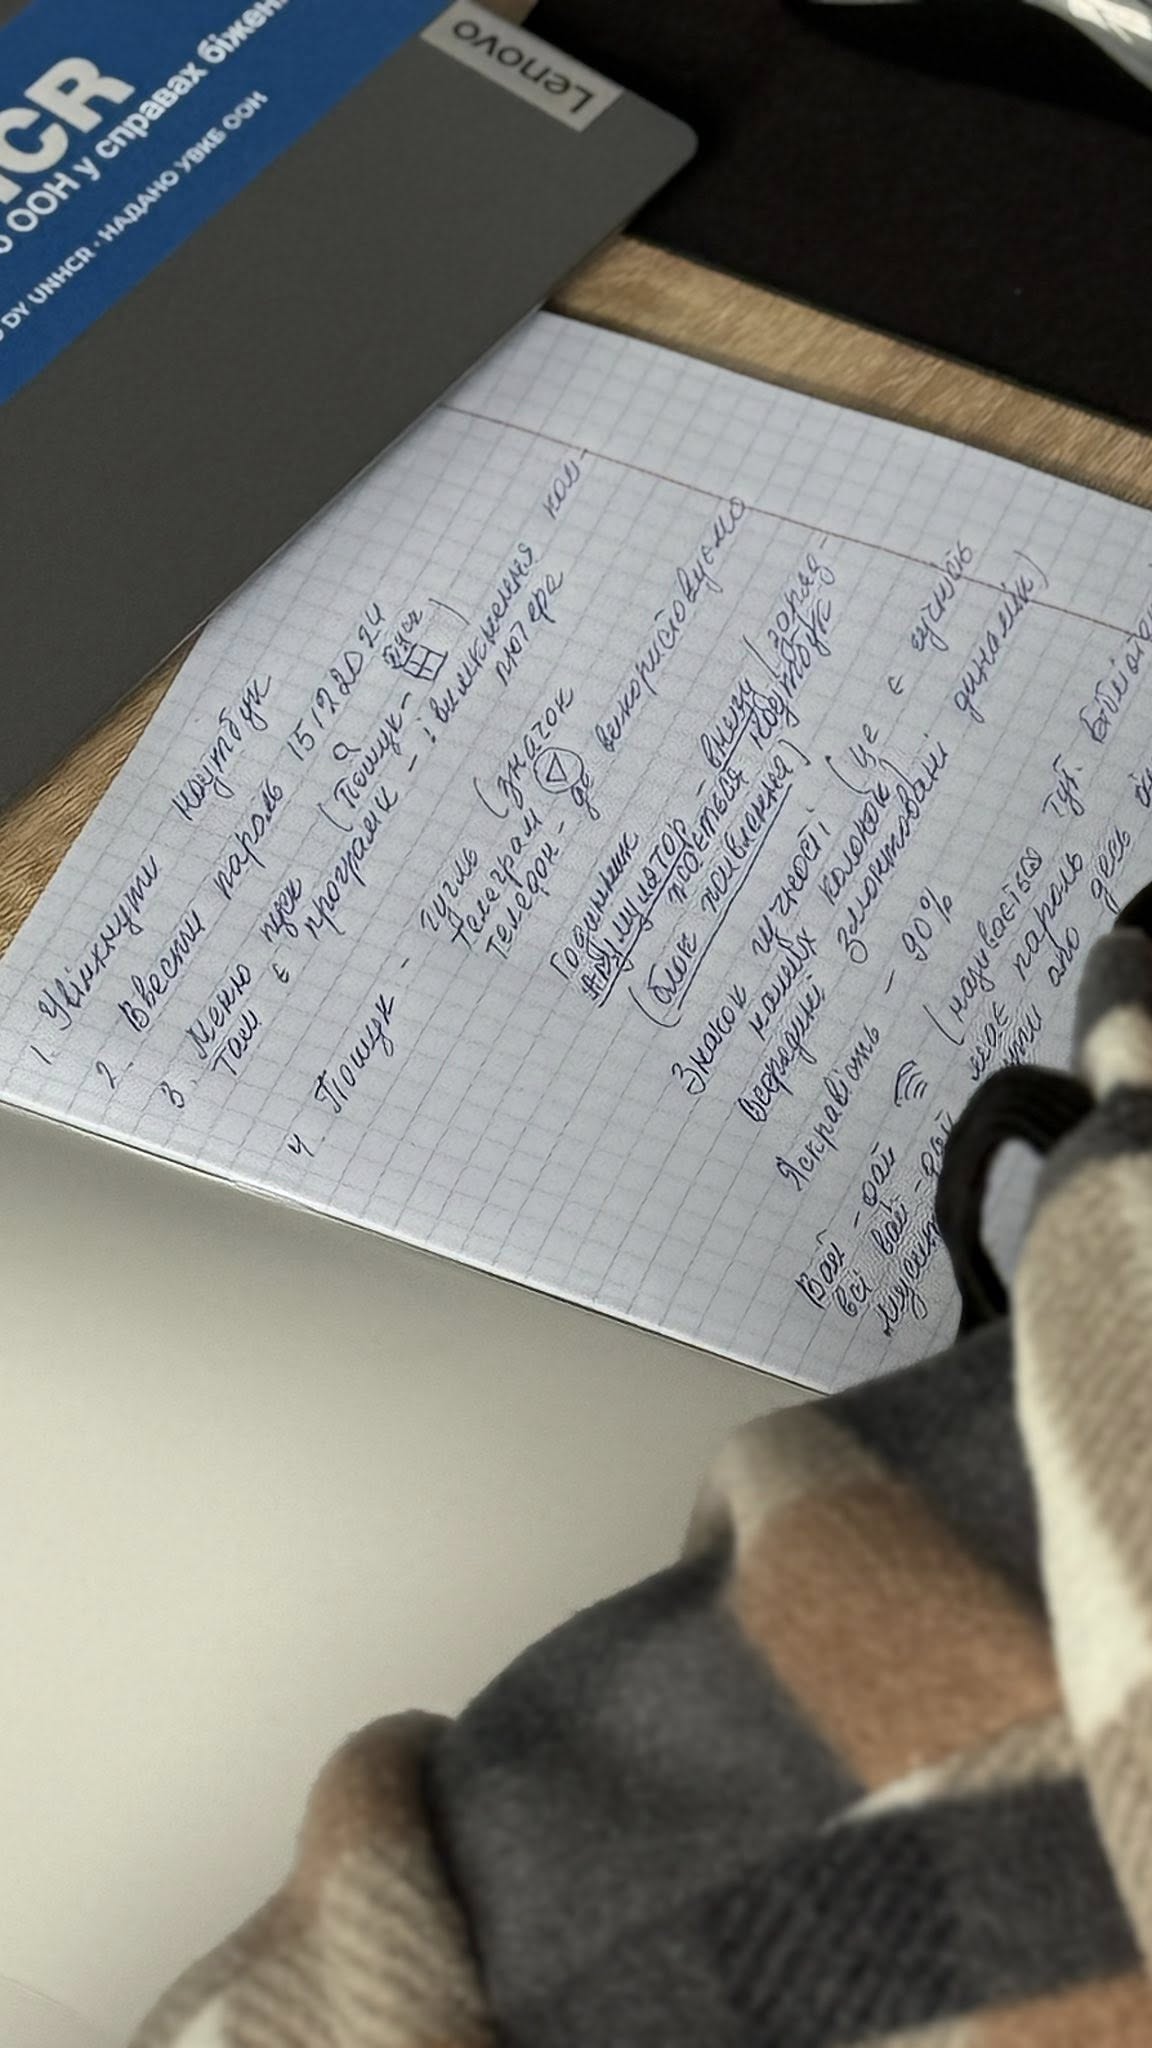 Lenovo
CR
ООН у справах біжен
DY UNHCR · НАДАНО УВКБ ООН
1. Увімкнути ноутбук
2. Ввести пароль 15122024
3. Меню пуск (Пошук -
Там є програми - і вимкнення ком-
пютера
4. Пошук - гугль
Телеграм (значок
телефон - де використовуємо
Годинник
Акумулятор - внизу заряд-
ноутбук
(блок живлення)
Значок гучності (це є гучність
наших колонок
всередині вмонтовані динамік)
Яскравість - 90%
Вай - фай (називається тут
всі вай - фай має пароль
або десь